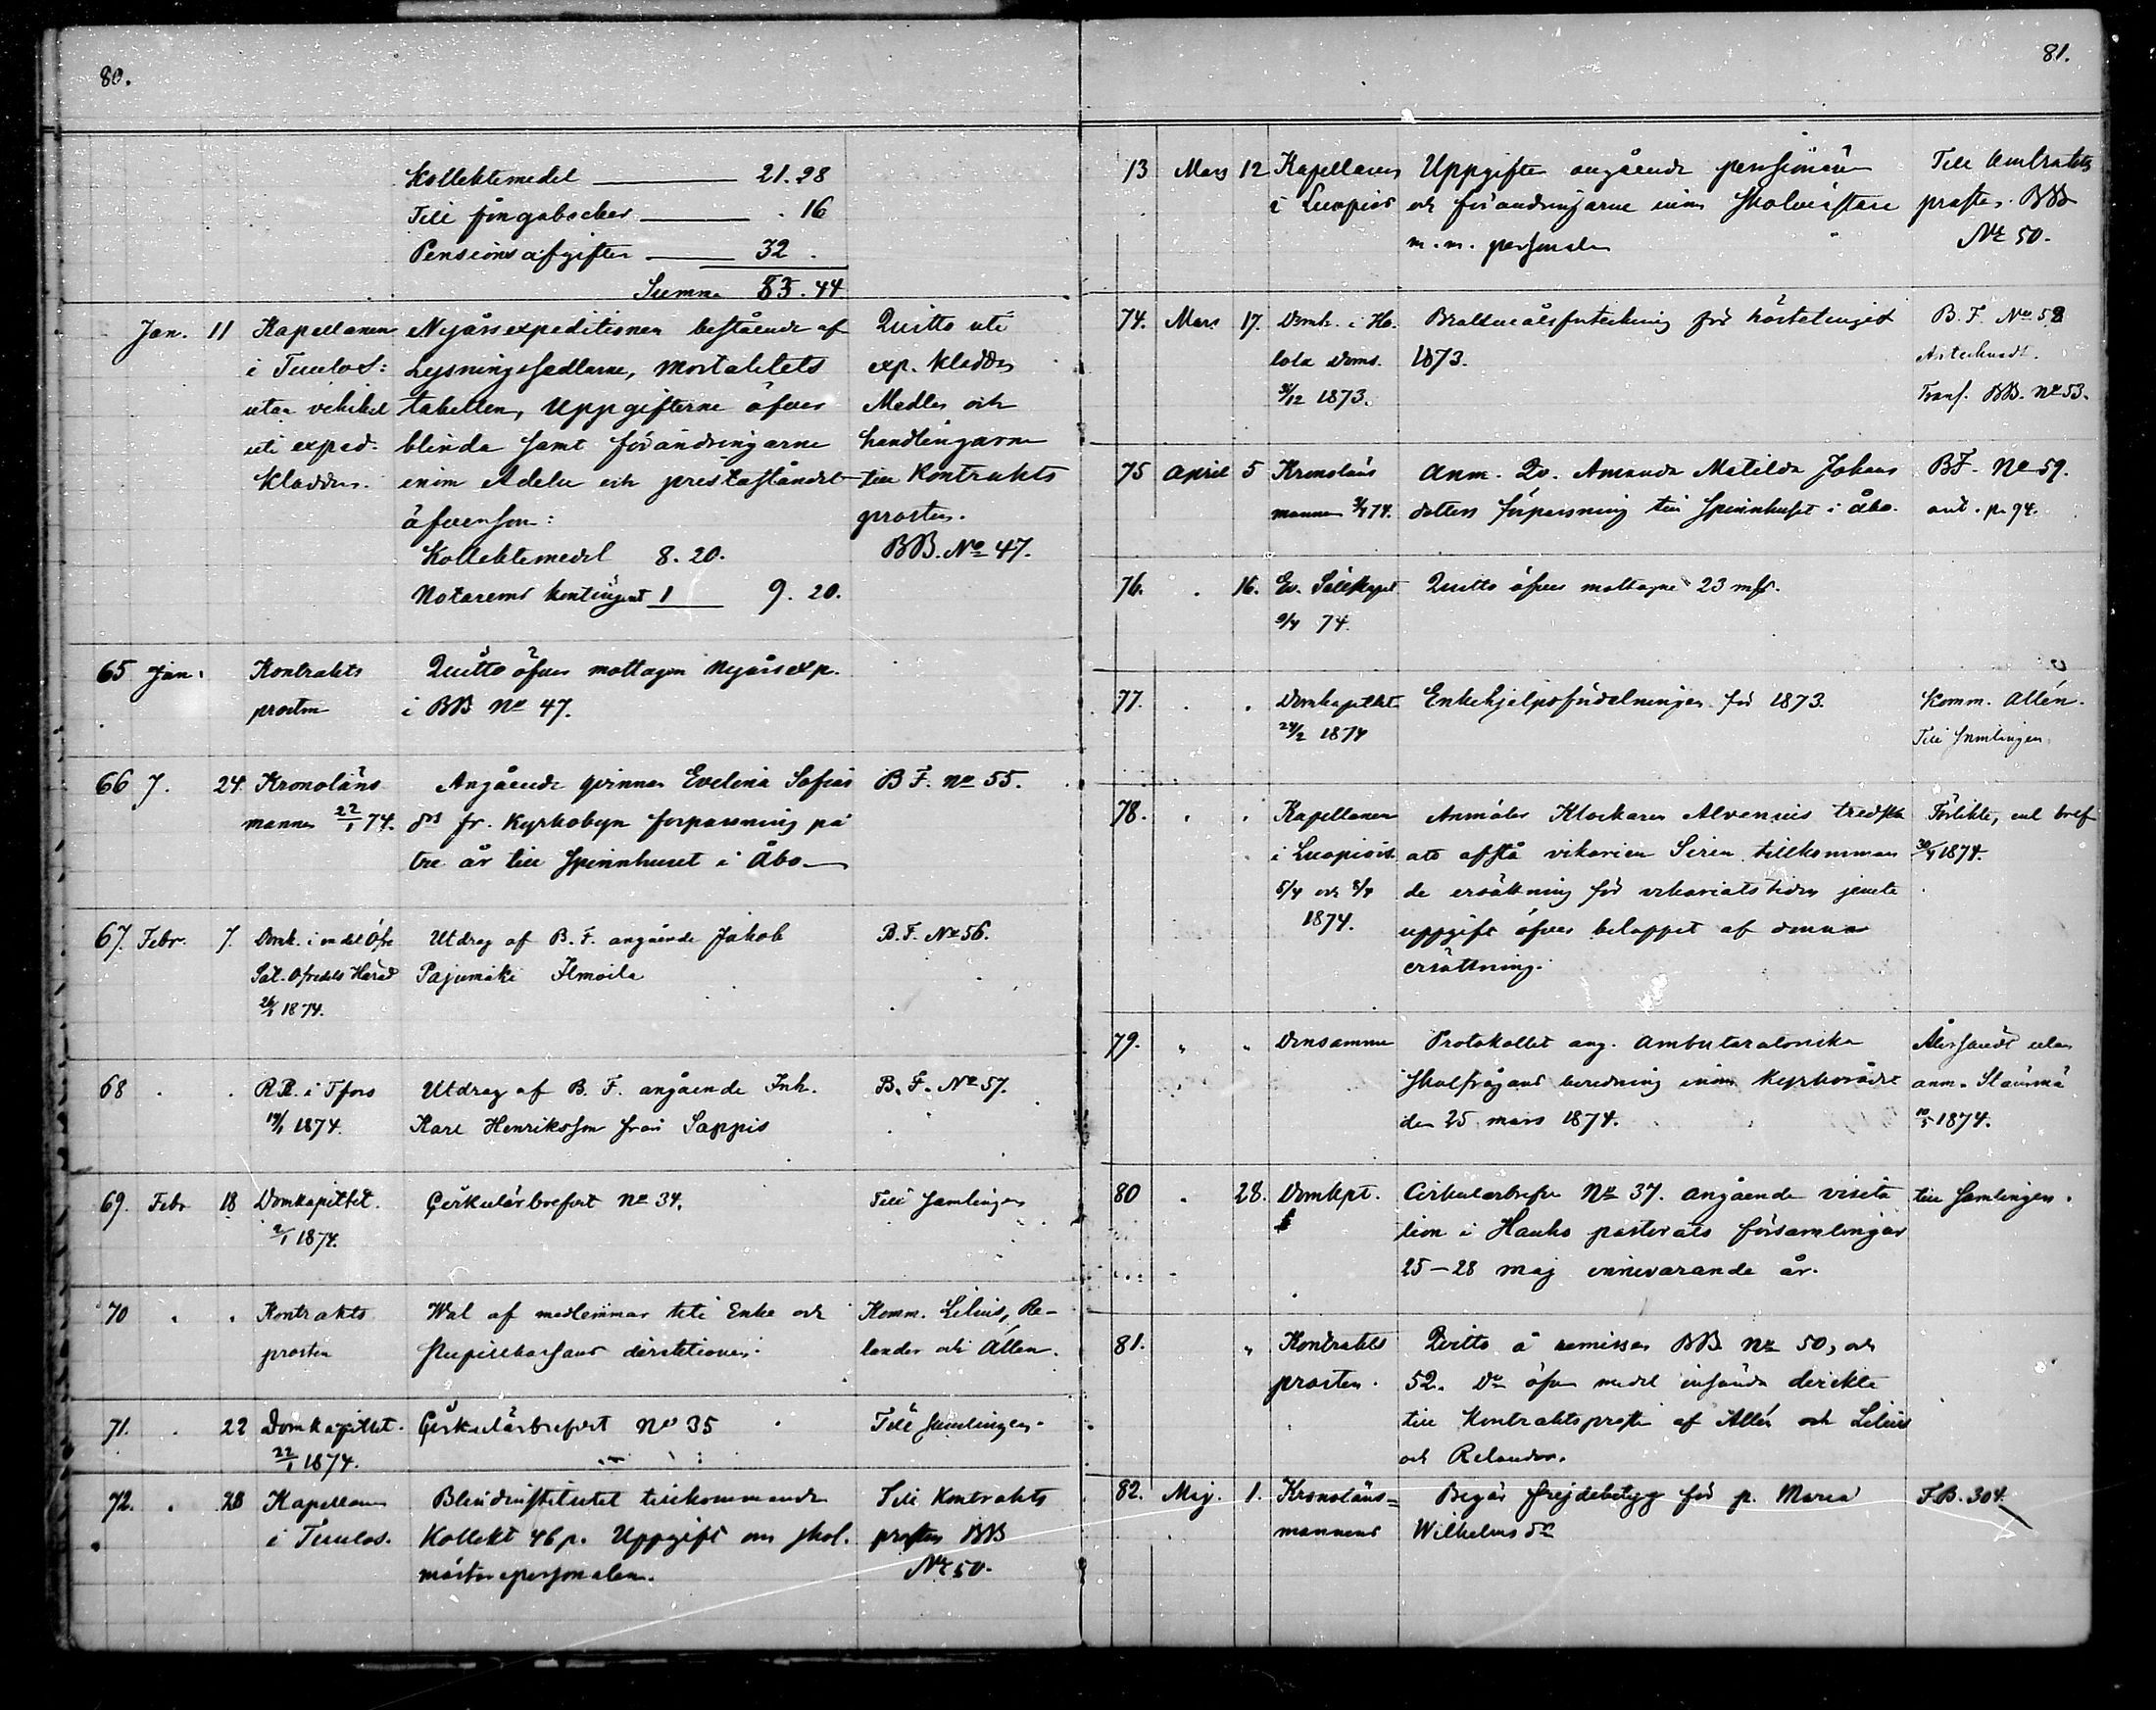 80.
Kollektemedel 21.28
Till fångaböcker . 16
Pensions afgifter 32 .
Summa 53.44
Jan. 11 Kapellanen Nyårsexpeditionen bestående af Quitto uti
i Tuulos: Lysningssedlarne, Mortalitets exp. kladden
utan vehikel tabellen, Uppgifterne öfver Medlen och
uti exped. blinda samt förändringarne handlingarne
kladden. inom Adeln och prestaståndet till Kontrakts
äfvensom: prosten.
Kollektemedel 8.20. BB. No 47.
Notarens kontingent 1 9.20.
65 Jan. Kontrakts Quitto öfver mottagen Nyårsexp.
prosten i BB No 47.
66 J. 24 Kronoläns Angående qvinnan Evelina Sofias B F. No 55.
mannen 22/1 74. dr fr. Kyrkobyn forpassning på
tre år till Spinnhuset i Åbo
67. Febr. 7. Domh. i en del Öfre Utdrag af B. F. angående Jakob B. F. No 56.
Sat. Öfredels Härad Pajumäki Ilmoila
26/1 1874.
68 . . RR. i Tfors Utdrag af B. F. angående Inh. B. F. No 57.
14/1 1874. Karl Henriksson från Sappis
69. Febr 18 Domkapitlet. Cirkulärbrefvet No 34. Till Samlingen
2/1 1874.
70 . . Kontrakts Wal af medlemmar uti Enke och Komm. Lilius, Re-
prosten pupillkassans direktionen. lander och Allén.
71. . 22 Domkapitlet. Cirkulärbrefvet No 35 Till Samlingen.
22/1 1874.
72. . 28 Kapellanen Blindinstitutet tillkommande Till Kontrakts
i Tuulos. Kollekt 46 p. Uppgift om skol. prosten BB
mästarepersonalen. No 50.
81.
13 Mars 12 Kapellanen Uppgifter angående pensionärer Till Kontrakts
i Luopiois och förändringarne inom Skolmästare prosten. BB
m.m. personalen No 50.
74. Mars 17. Domh. i Ho. Brottmålsförteckning för hösttinget B. F. No 58
lola Doms. 1873. Antecknadt.
31/12 1873. Transf. BB. No 53.
75 April 5 Kronoläns Anm. Qv. Amanda Matilda Johans BF. No 59.
mannen 2/4 74. dotters förpassning till Spinnhuset i Åbo. ant. p. 94.
76. . 16. Ev. Sällskapet Quitto öfver mottagne 23 mk.
9/4 74.
77. . . Domkapitlet Enkehjelpsfördelningen för 1873. Komm. Allén.
24/2 1874 Till Samlingen
78. . . Kapellanen Anmäler Klockaren Alvenius tredska Förlikte, enl bref
i Luopiois. att afstå vikarien Siren tillkomman 30/4 1874.
5/4 och 8/4 de ersättning för vikariatstiden jemte
1874. uppgift öfver beloppet af denna
ersättning.
79. „ „ Densamme Protokollet ang. Ambulatoriska Återsändt utan
Skolfrågans beredning inom Kyrkorådet anm.
den 25 mars 1874. 10/5 1874.
80 . 28. Domkpt. Cirkulärbrefve No 37. angående visita till Samlingen.
tion i Hauho pastorats församlingar
25–28 maj innevarande år.
81. „ Kontrakts Qvitto å remissen BB. No 50, och
prosten. 52. Do öfver medel insända direkte
till Kontraktsprosten af Allén och Lilius
och Relander.
82. Maj. 1. Kronoläns= Begär frejdebetyg för p. Maria F.B. 304.
mannens Wilhelms dr